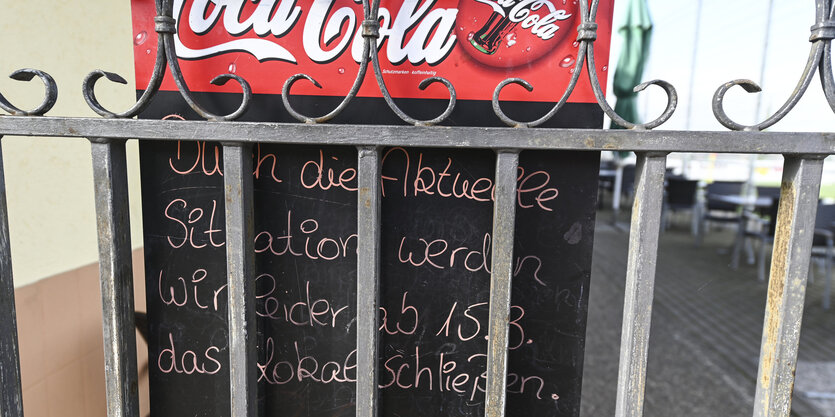 Coca-Cola
Coca-Cola
Schutzmarken koffeinhaltig
Durch die Aktuelle
Situation werden
wir leider ab 15.3.
das Lokal schließen.